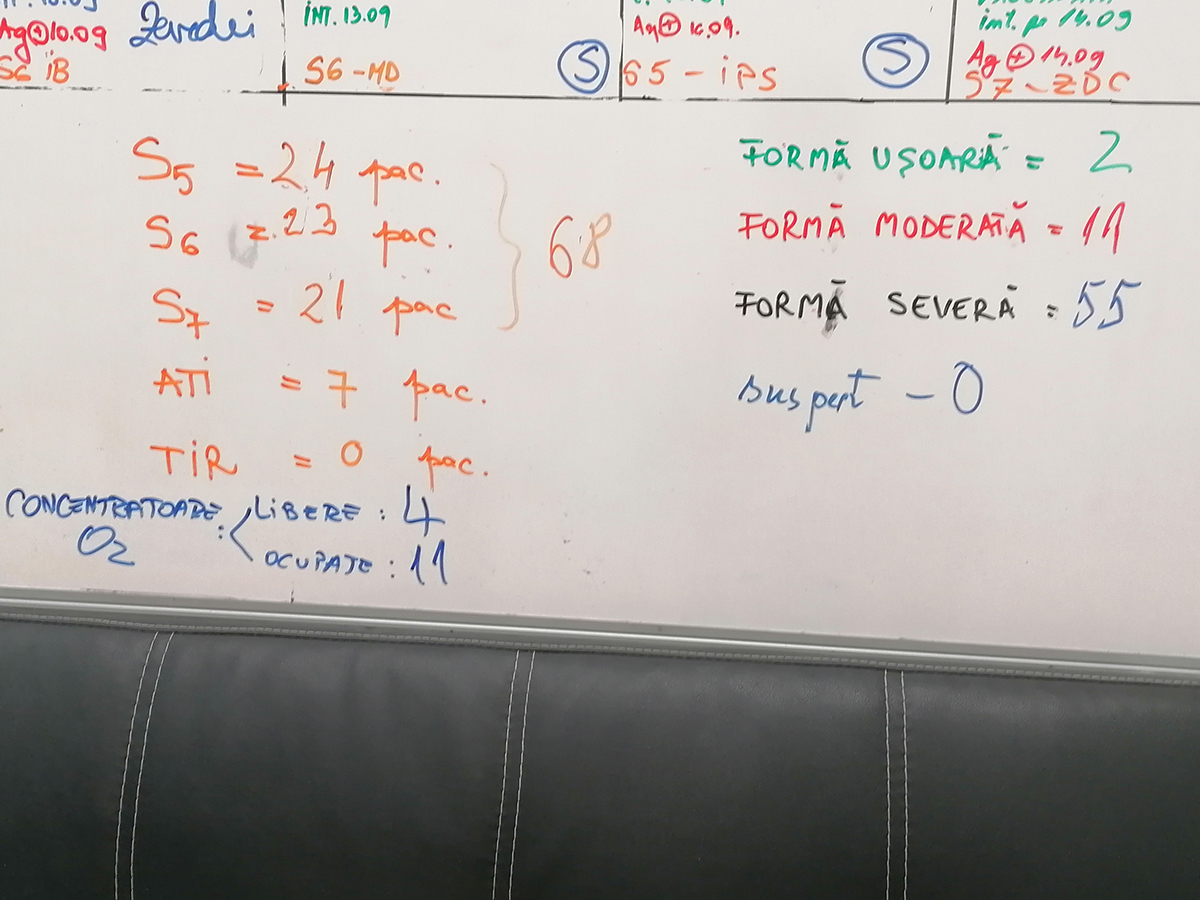 Ag⊕10.09
S6 iB
Zevedei
INT. 13.09
S6 - MD
S
Ag⊕ 16.09.
S5 - iPS
S
int. pe 14.09
Ag ⊕ 14.09
S7 - ZDC
S5 = 24 pac.
S6 = 23 pac.
S7 = 21 pac
68
ATi = 7 pac.
TiR = 0 pac.
CONCENTRATOARE O2 :
LiBERE : 4
OCUPATE : 11
FORMĂ UȘOARĂ = 2
FORMĂ MODERATĂ = 11
FORMĂ SEVERĂ = 55
suspect - 0